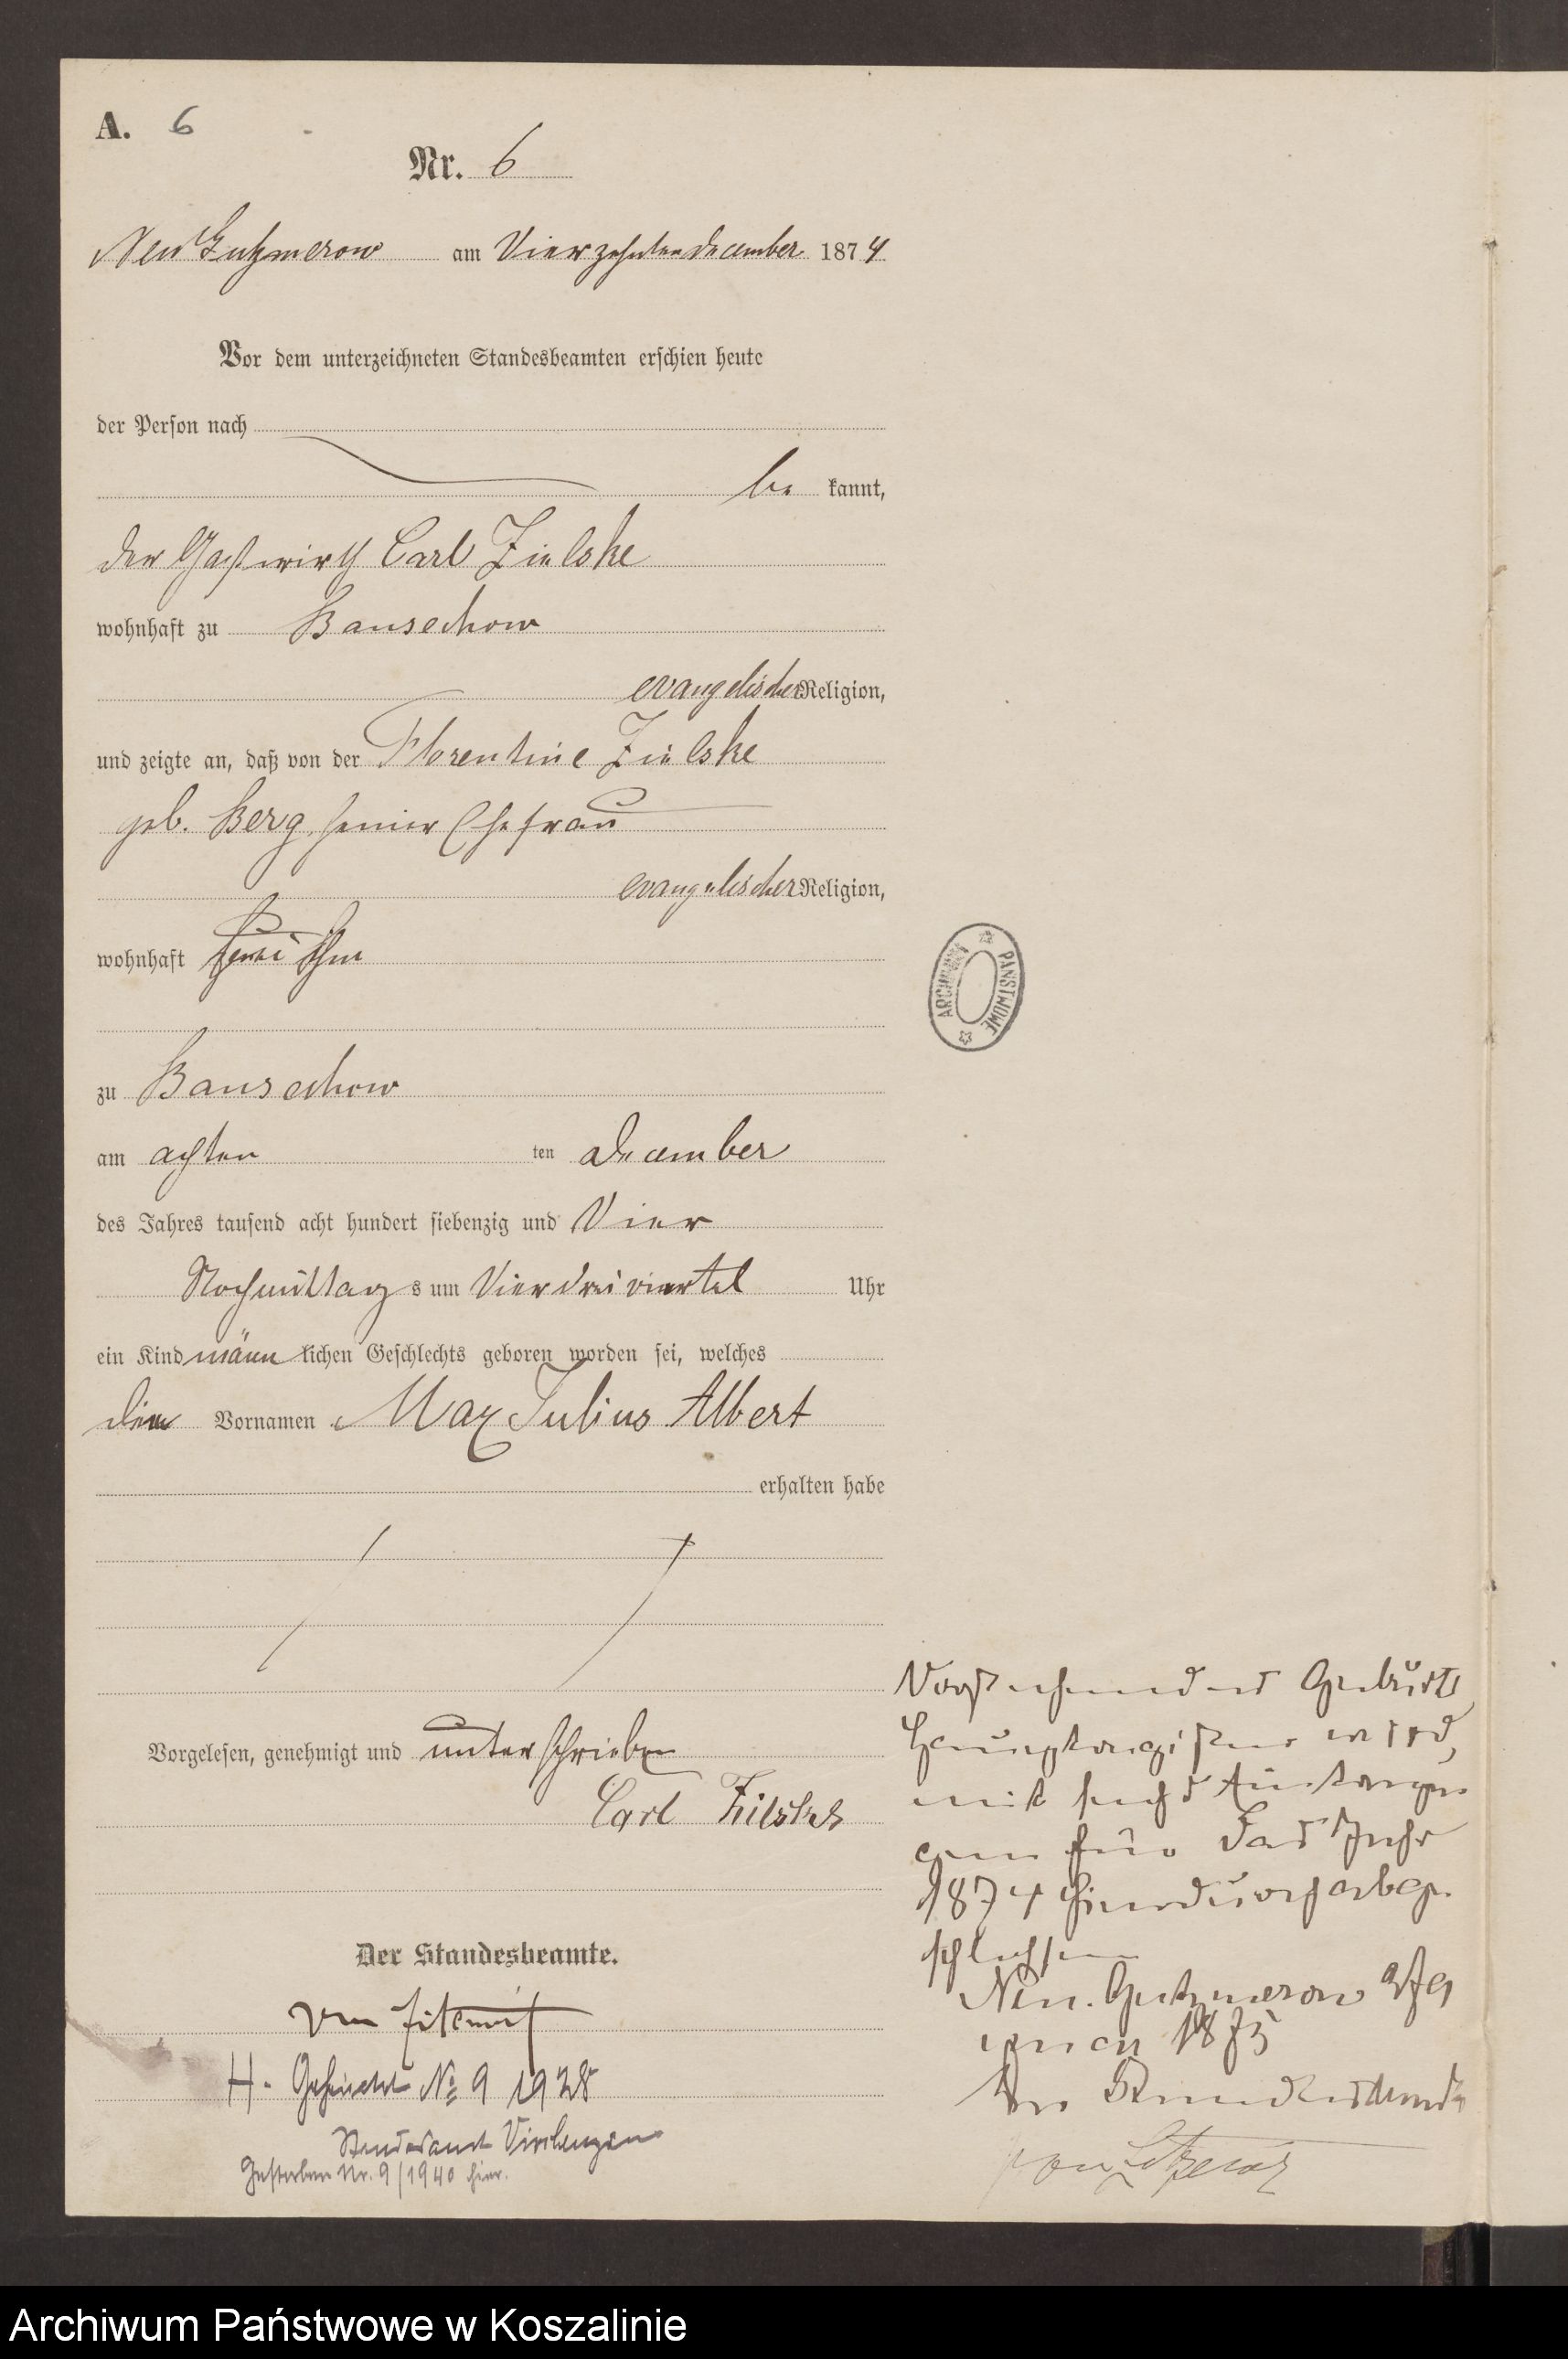 A. 6
Nr. 6
Neu Gutzmerow am Vierzehnten December 1874
Vor dem unterzeichneten Standesbeamten erschien heute
der Person nach
be kannt,
der Gastwirth Carl Zielske
wohnhaft zu Bansechow
evangelischer Religion,
und zeigte an, daß von der Florentine Zielske
geb. Berg seiner Ehefrau
evangelischer Religion,
wohnhaft bei ihm
zu Bansechow
am achten ten December
des Jahres tausend acht hundert siebenzig und Vier
Nachmittag s um Vier drei viertel Uhr
ein Kind männ lichen Geschlechts geboren worden sei, welches
die Vornamen Max Julius Albert
erhalten habe
Vorgelesen, genehmigt und unterschrieben
Carl Zielske
Der Standesbeamte.
von
H. Geheirathet No 9 1928
Standesamt
Gestorben Nr. 9/1940 hier.
ARCHIWUM PAŃSTWOWE
Vorstehendes Geburts
Hauptregister wird,
mit sechs Eintragun
gen für das Jahr
1874 hierdurch abge
schlossen
Neu. Gutzmerow
1875
Der Standesbeamte
von
Archiwum Państwowe w Koszalinie